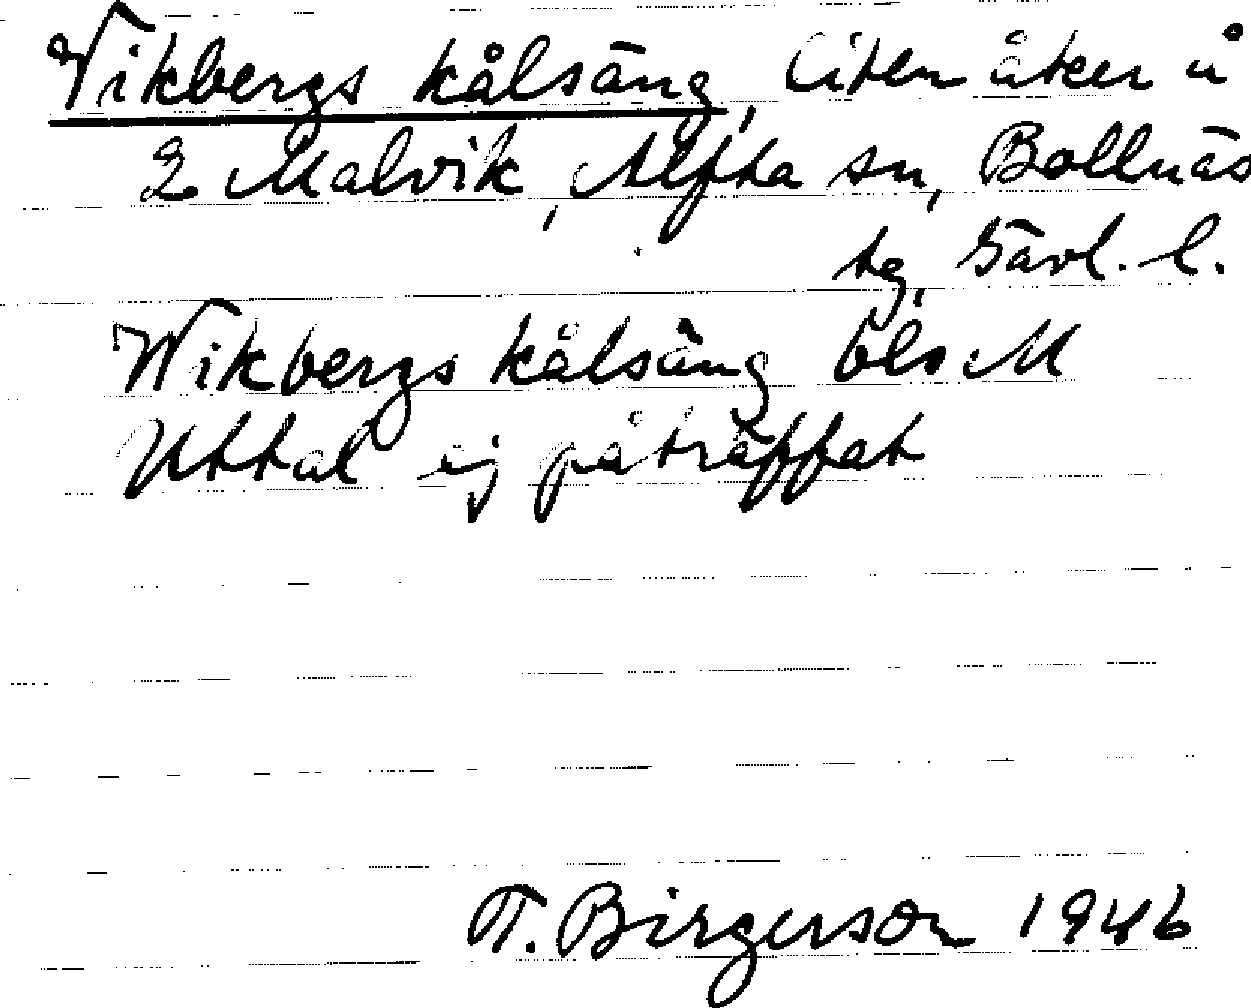 Vikbergs kålsäng, liten åker å
2 Malvik, Alfta sn, Bollnäs
tg, Gävl. l.
Wikbergs kålsäng bls M
Uttal ej påträffat
T. Birgerson 1946